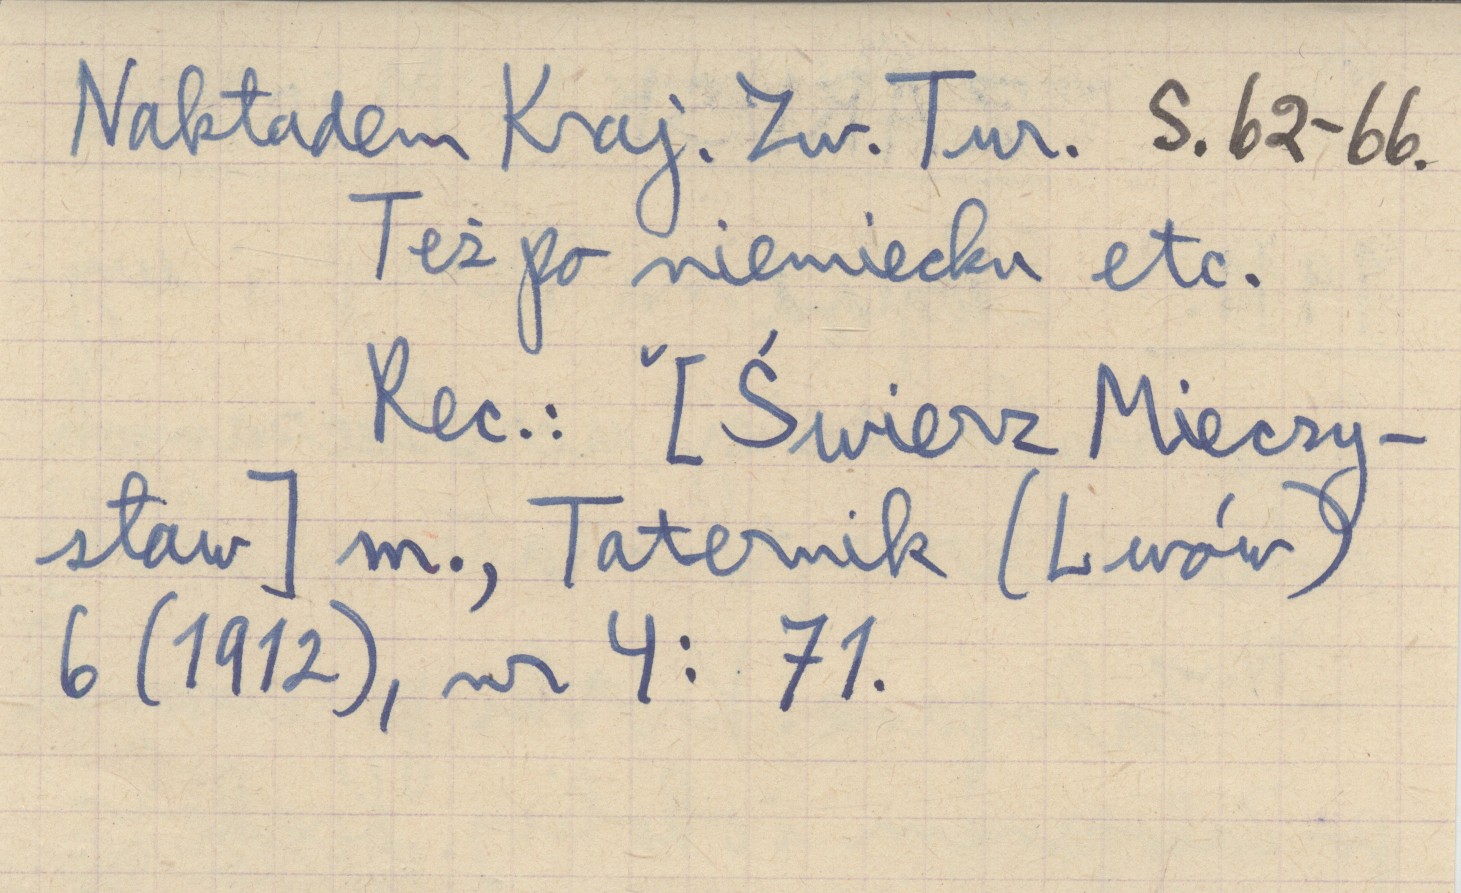 Nakładem Kraj. Zw. Tur. S. 62-66.
Też po niemiecku etc.
Rec.: [Świerz Mieczy-
sław] m., Taternik (Lwów)
6 (1912), nr 4: 71.